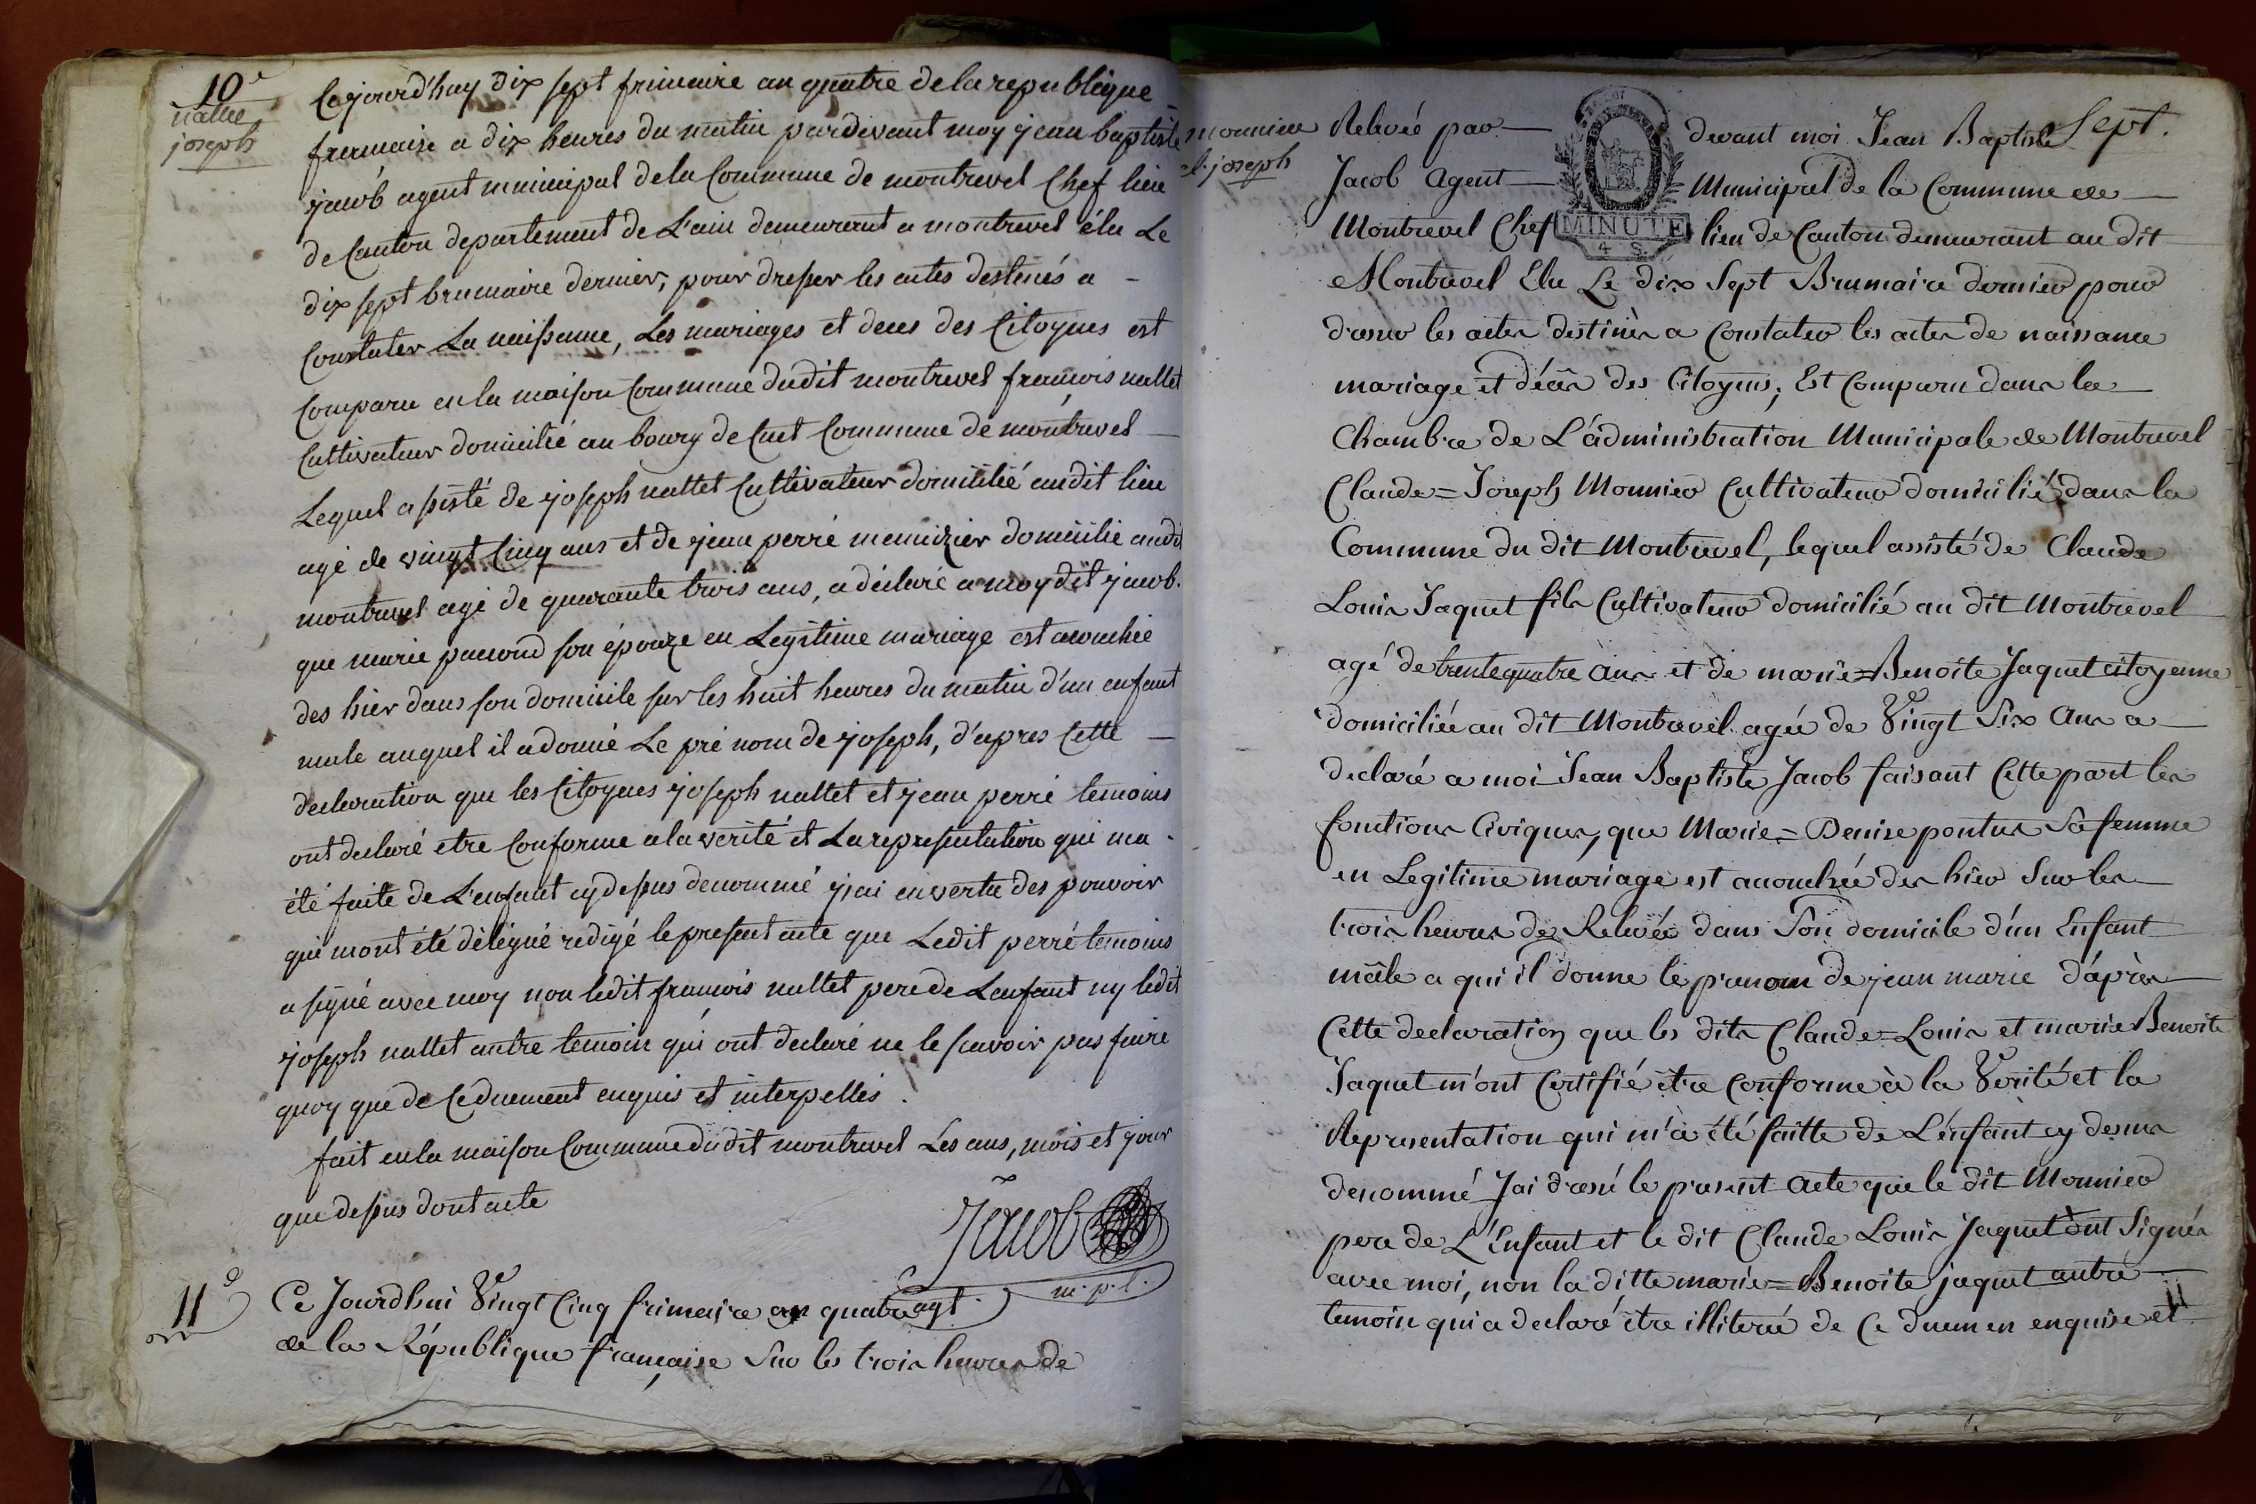 10e
nallet
joseph
Cejourd'huy dix sept frimaire an quatre de la republique
francaise a dix heures du matin pardevant moy jean baptiste
jacob agent municipal de la Commune de montrevel Chef lieu
de Canton departement de L'ain demeurant a montrevel élu Le
dix sept brumaire dernier, pour dresser les actes destinés a
Constater La naissance, Les mariages et deces des Citoyens est
Comparu en la maison Commune dudit montrevel francois nallet
Cultivateur domicilié au bourg de Cuet Commune de montrevel
Lequel assisté de joseph nallet Cultivateur domicilié audit lieu
agé de vingt Cinq ans et de jean perré menuizier domicilié audit
montrevel agé de quarante trois ans, a déclaré a moy dit jacob.
que marie pauond son épouze en Legitime mariage est acouchée
des hier dans son domicile sur les huit heures du matin d'un enfant
male auquel il a donné Le pré nom de joseph, d'apres Cette
declaration que les Citoyens joseph nallet et jean perré temoins
ont declaré etre Conforme a la verité et La representation qui ma
été faite de L'enfant cy dessus denommé j'ai en vertu des pouvoir
qui mont été délégué redigé le present acte que Ledit perré temoins
a signé avec moy non ledit francois nallet pere de Lenfant ny ledit
joseph nallet autre temoin qui ont declaré ne le scavoir pas faire
quoy que de Ce duement enquis et interpellés.
fait en la maison Commune dudit montrevel Les ans, mois et jour
que dessus dont acte
Jacob
agt. m.p.l.
11e
Ce Jourdhui Vingt Cinq frimaire an quatre
de la République française Sur les trois heures de
monnier
cl. joseph
Sept.
Relevée par devant moi Jean Baptiste
Jacob Agent Municipal de la Commune de
Montrevel Chef lieu de Canton demeurant au dit
MINUTE
4 S
Montrevel Elu Le dix Sept Brumaire dernier pour
dresser les actes destinés a Constater les actes de naissance
mariage et décès des Citoyens, Est Comparu dans la
Chambre de L'administration Municipale de Montrevel
Claude=Joseph Monnier Cultivateur domicilié dans la
Commune du dit Montrevel, lequel assisté de Claude
Louis Jaquet fils Cultivateur domicilié au dit Montrevel
agé de trente quatre ans et de marie=Benoite Jaquet citoyenne
domiciliée au dit Montrevel agée de Vingt Six Ans a
declaré a moi Jean Baptiste Jacob faisant Cette part les
fonctions Civiques, que Marie=Denise pontus Sa femme
en Legitime mariage est acouchée des hier Sur les
trois heures de Relevée dans Son domicile d'un Enfant
mâle a qui il donne le prenom de jean marie d'après
Cette declaration que les dits Claude=Louis et marie Benoite
Jaquet m'ont Certifié être Conforme à la Verité et la
Representation qui m'a été faitte de L'enfant cy dessus
denommé J'ai dressé le present Acte que le dit Monnier
pere de L'Enfant et le dit Claude Louis Jaquet ont Signés
avec moi, non la ditte marie=Benoite jaquet autre
temoin qui a declaré être illiterée de Ce duemen enquise et